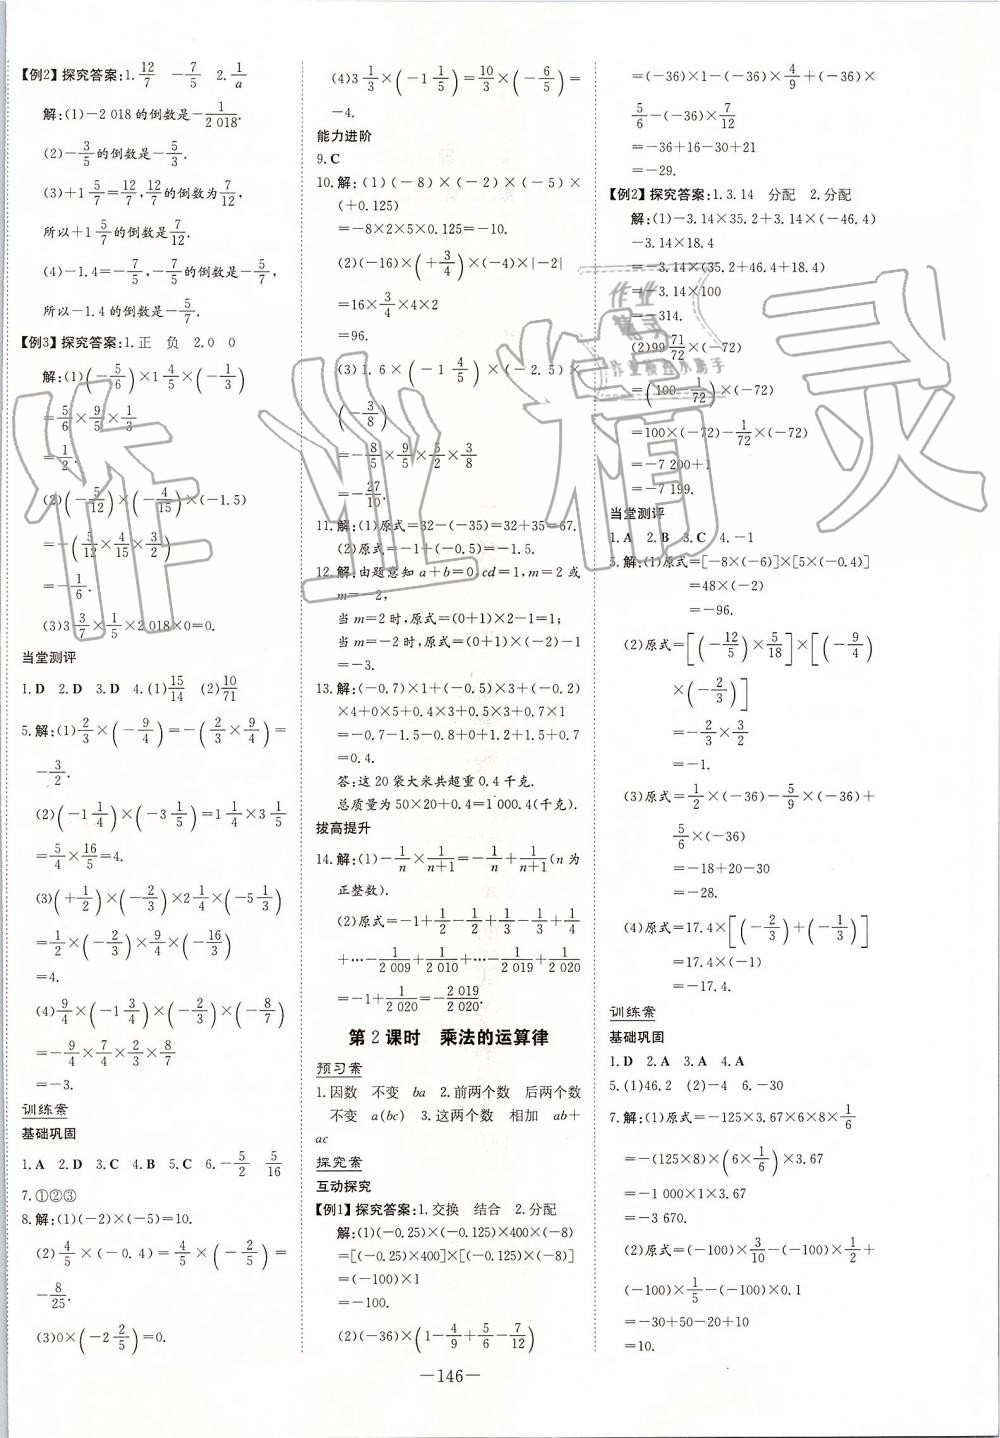 【例2】探究答案:1.12/7 -7/5 2.1/a
解:(1)-2 018的倒数是-1/2 018.
(2)-3/5的倒数是-5/3.
(3)+1 5/7=12/7,12/7的倒数为7/12,
所以+1 5/7的倒数是7/12.
(4)-1.4=-7/5,-7/5的倒数是-5/7,
所以-1.4的倒数是-5/7.
【例3】探究答案:1.正 负 2.0 0
解:(1)(-5/6)×1 4/5×(-1/3)
=5/6×9/5×1/3
=1/2.
(2)(-5/12)×(-4/15)×(-1.5)
=-(5/12×4/15×3/2)
=-1/6.
(3)3 3/7×1/5×2 018×0=0.
当堂测评
1.D 2.D 3.D 4.(1)15/14 (2)10/71
5.解:(1)2/3×(-9/4)=-(2/3×9/4)=
-3/2.
(2)(-1 1/4)×(-3 1/5)=1 1/4×3 1/5
=5/4×16/5=4.
(3)(+1/2)×(-2/3)×2 1/4×(-5 1/3)
=1/2×(-2/3)×9/4×(-16/3)
=4.
(4)9/4×(-1 3/4)×(-2/3)×(-8/7)
=-9/4×7/4×2/3×8/7
=-3.
训练案
基础巩固
1.A 2.D 3.C 4.B 5.C 6.-5/2 5/16
7.①②③
8.解:(1)(-2)×(-5)=10.
(2)4/5×(-0.4)=4/5×(-2/5)=
-8/25.
(3)0×(-2 2/5)=0.
(4)3 1/3×(-1 1/5)=10/3×(-6/5)=
-4.
能力进阶
9.C
10.解:(1)(-8)×(-2)×(-5)×
(+0.125)
=-8×2×5×0.125=-10.
(2)(-16)×(+3/4)×(-4)×|-2|
=16×3/4×4×2
=96.
(3)1.6×(-1 4/5)×(-2.5)×
(-3/8)
=-8/5×9/5×5/2×3/8
=-27/10.
11.解:(1)原式=32-(-35)=32+35=67.
(2)原式=-1+(-0.5)=-1.5.
12.解:由题意知a+b=0,cd=1,m=2或
m=-2,
当m=2时,原式=(0+1)×2-1=1;
当m=-2时,原式=(0+1)×(-2)-1
=-3.
13.解:(-0.7)×1+(-0.5)×3+(-0.2)
×4+0×5+0.4×3+0.5×3+0.7×1
=-0.7-1.5-0.8+0+1.2+1.5+0.7
=0.4.
答:这20袋大米共超重0.4千克.
总质量为50×20+0.4=1 000.4(千克).
拔高提升
14.解:(1)-1/n×1/(n+1)=-1/n+1/(n+1)(n为
正整数).
(2)原式=-1+1/2-1/2+1/3-1/3+1/4
+…-1/2 009+1/2 010+…-1/2 019+1/2 020
=-1+1/2 020=-2 019/2 020.
第2课时 乘法的运算律
预习案
1.因数 不变 ba 2.前两个数 后两个数
不变 a(bc) 3.这两个数 相加 ab+
ac
探究案
互动探究
【例1】探究答案:1.交换 结合 2.分配
解:(1)(-0.25)×(-0.125)×400×(-8)
=[(-0.25)×400]×[(-0.125)×(-8)]
=(-100)×1
=-100.
(2)(-36)×(1-4/9+5/6-7/12)
=(-36)×1-(-36)×4/9+(-36)×
5/6-(-36)×7/12
=-36+16-30+21
=-29.
【例2】探究答案:1.3.14 分配 2.分配
解:(1)-3.14×35.2+3.14×(-46.4)
-3.14×18.4
=-3.14×(35.2+46.4+18.4)
=-3.14×100
=-314.
(2)99 71/72×(-72)
=(100-1/72)×(-72)
=100×(-72)-1/72×(-72)
=-7 200+1
=-7 199.
当堂测评
1.A 2.B 3.C 4.-1
5.解:(1)原式=[-8×(-6)]×[5×(-0.4)]
=48×(-2)
=-96.
(2)原式=[(-12/5)×5/18]×[(-9/4)
×(-2/3)]
=-2/3×3/2
=-1.
(3)原式=1/2×(-36)-5/9×(-36)+
5/6×(-36)
=-18+20-30
=-28.
(4)原式=17.4×[(-2/3)+(-1/3)]
=17.4×(-1)
=-17.4.
训练案
基础巩固
1.D 2.A 3.A 4.A
5.(1)46.2 (2)-4 6.-30
7.解:(1)原式=-125×3.67×6×8×1/6
=-(125×8)×(6×1/6)×3.67
=-1 000×1×3.67
=-3 670.
(2)原式=(-100)×3/10-(-100)×1/2+
(-100)×1/5-(-100)×0.1
=-30+50-20+10
=10.
—146—
作业精灵